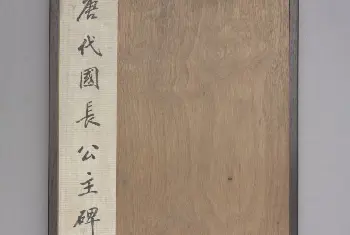 唐代國長公主碑